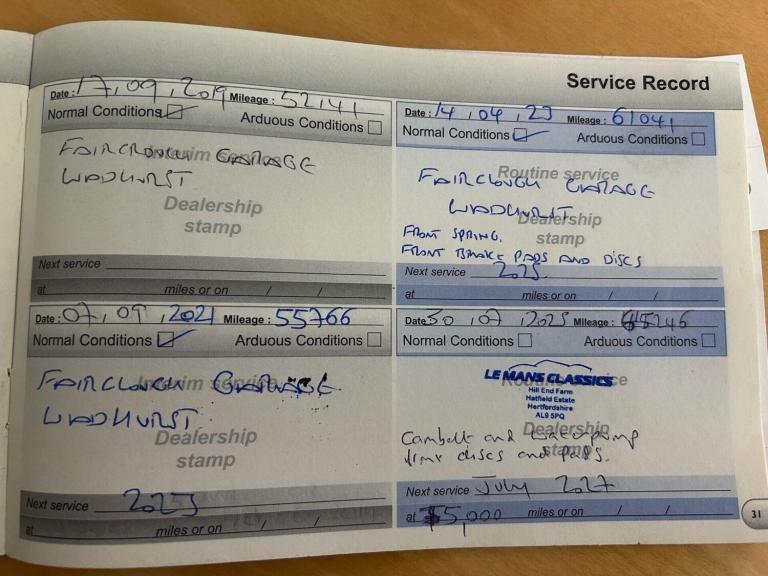 Service Record
Date : 17.09.2019 Mileage : 52141
Normal Conditions
Arduous Conditions
Interim service
FAIRCLOUGH GARAGE
WADHURST
Dealership
stamp
Next service
at miles or on / /
Date : 14.04.23 Mileage : 61041
Normal Conditions
Arduous Conditions
Routine service
FAIRCLOUGH GARAGE
WADHURST
Dealership
stamp
FRONT SPRING.
FRONT BRAKE PADS AND DISCS
Next service 2025.
at miles or on / /
Date : 07.09.2021 Mileage : 55766
Normal Conditions
Arduous Conditions
Interim service
FAIRCLOUGH GARAGE
WADHURST
Dealership
stamp
Next service 2023
at miles or on / /
Date 30.07.2025 Mileage : 65246
Normal Conditions
Arduous Conditions
Routine service
LE MANS CLASSICS
Hill End Farm
Hatfield Estate
Hertfordshire
AL9 5PQ
Dealership
stamp
Cambelt and waterpump
discs and pads.
Next service July 2027
at 5,000 miles or on / /
31